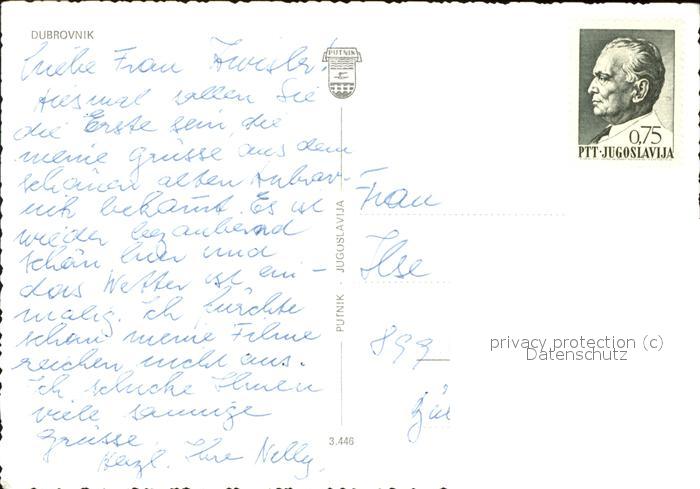 DUBROVNIK
Liebe Frau
PUTNIK
diesmal sollen Sie
die Erste sein, die
meine Grüsse aus dem
schönen alten Dubrov-
nik bekommt. Es ist
wieder bezaubernd
schön hier und
das Wetter ist ein-
malig. Ich fürchte
schon meine Filme
reichen nicht aus.
Ich schicke Ihnen
viele sonnige
Grüsse.
Herzl. Ihre Nelly.
PUTNIK - JUGOSLAVIJA
3.446
0,75
PTT·JUGOSLAVIJA
Frau
Ilse
899
privacy protection (c)
Datenschutz